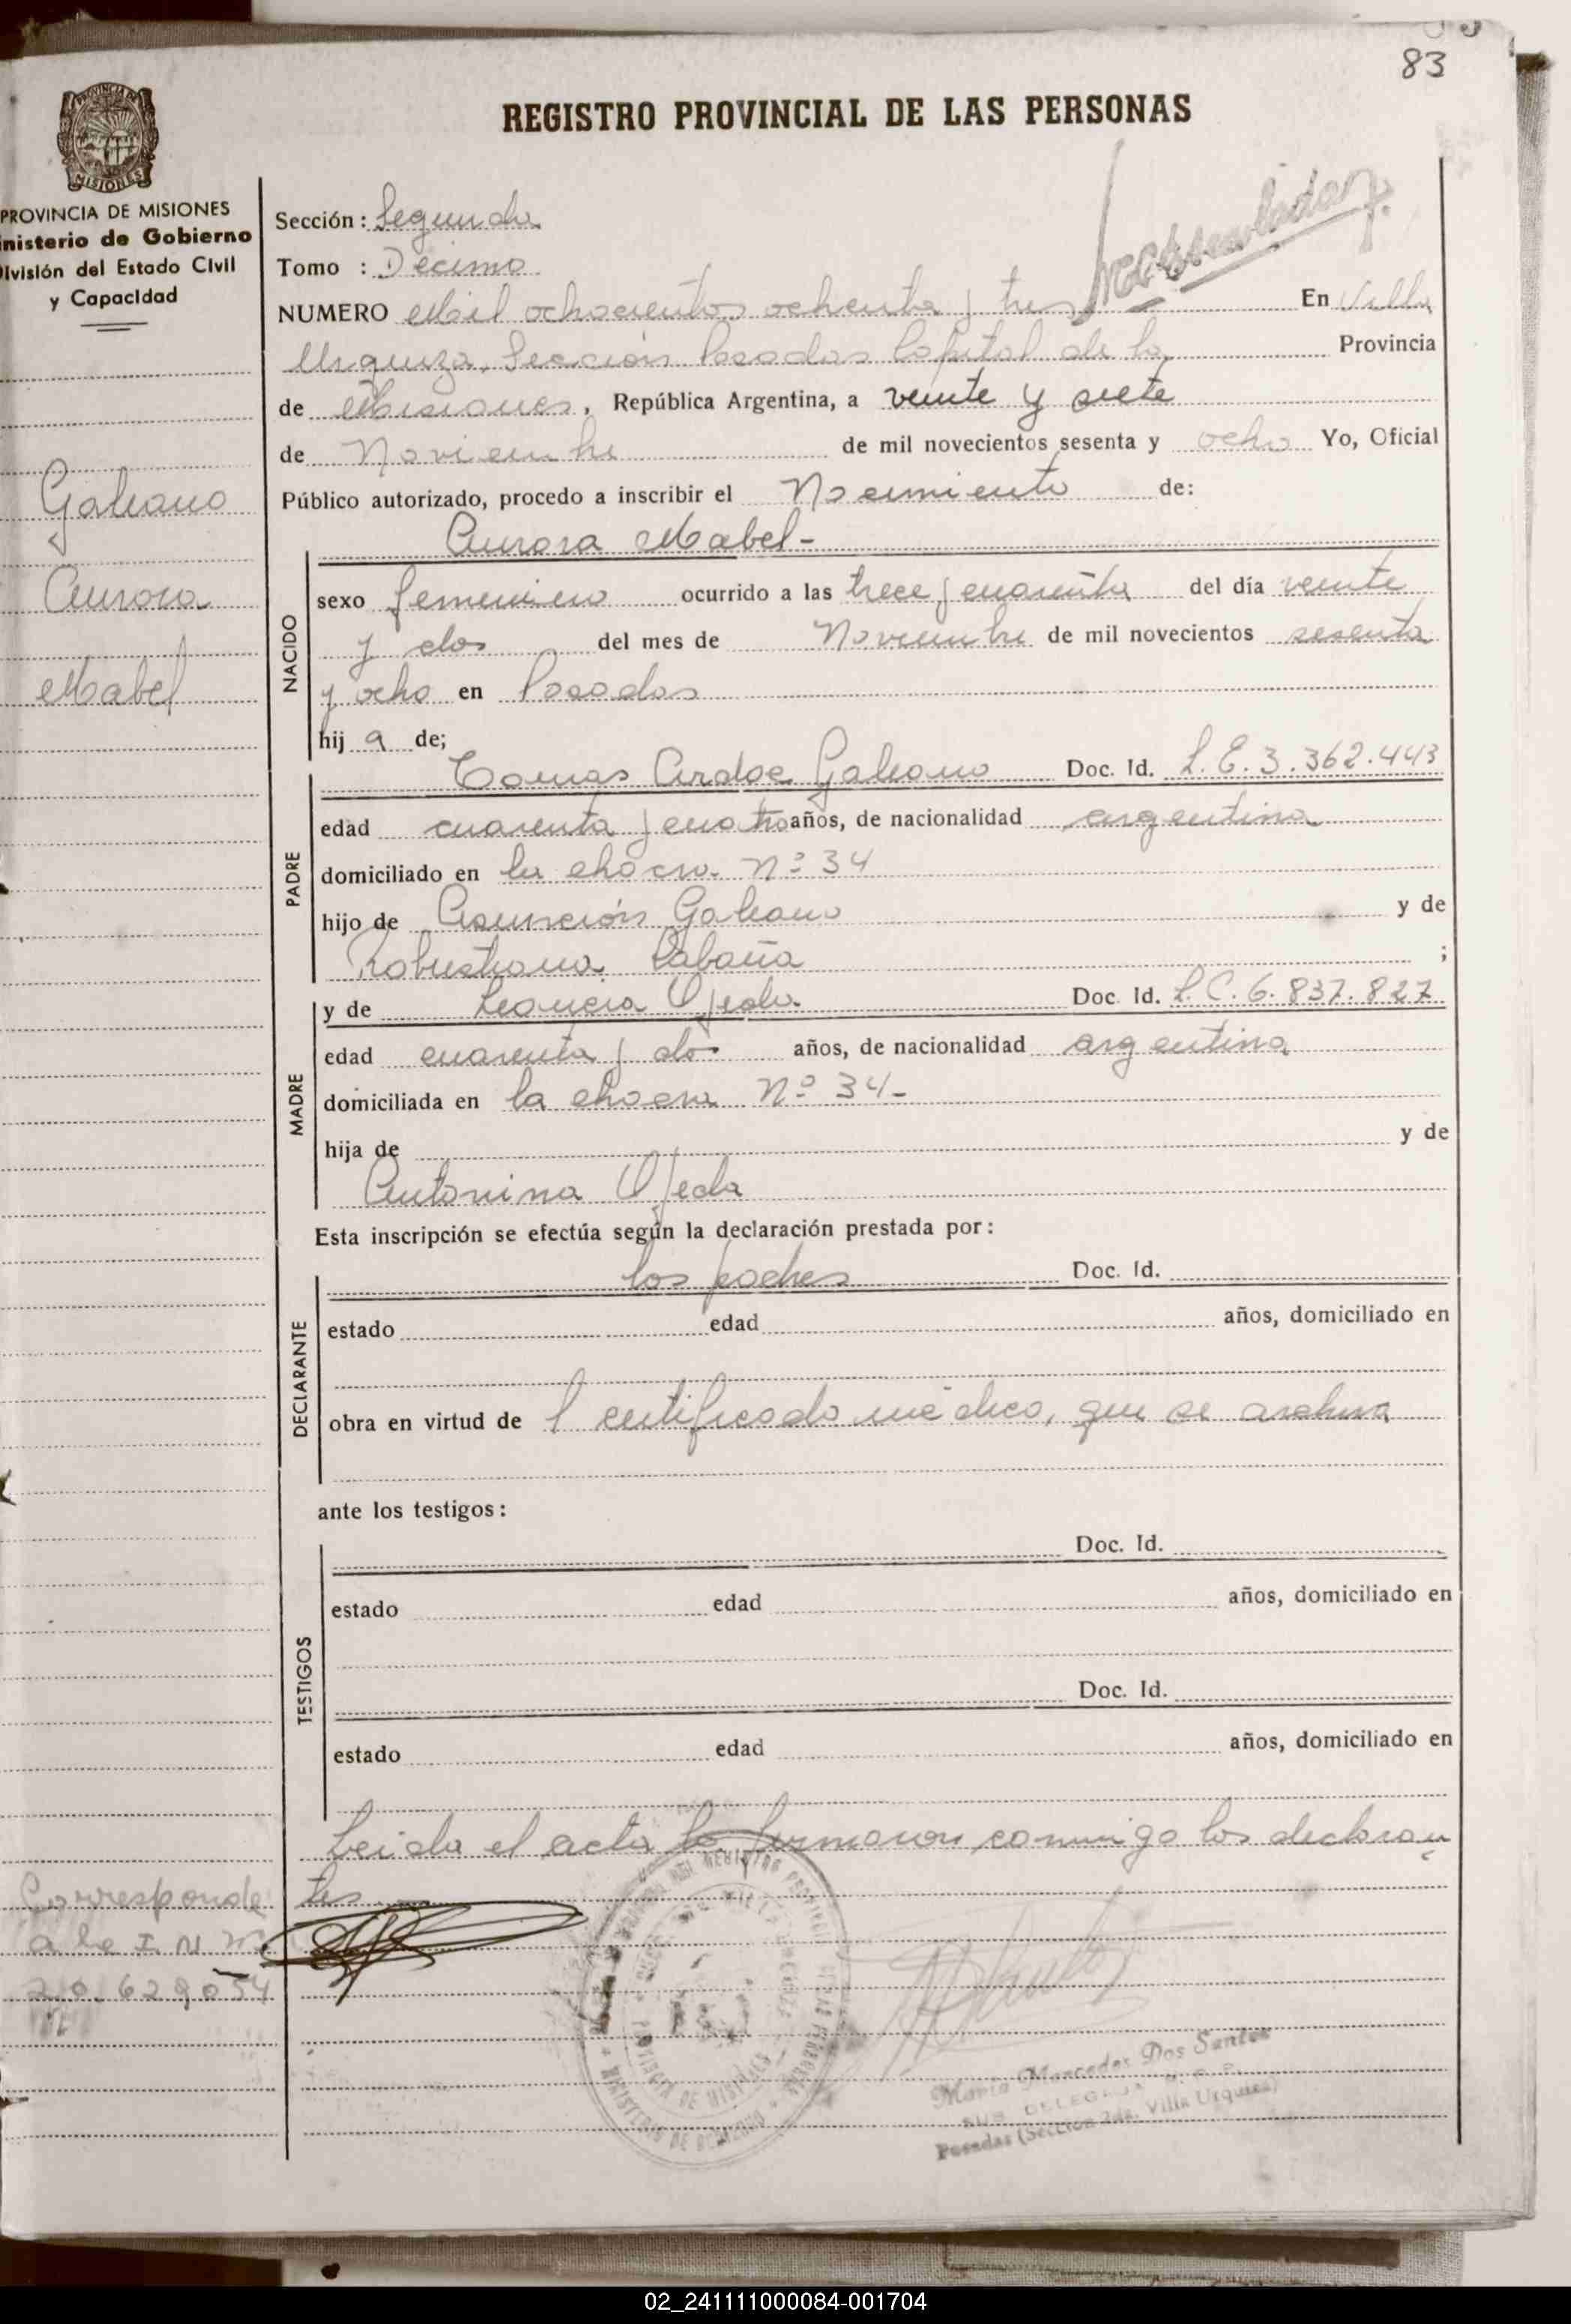 83
REGISTRO PROVINCIAL DE LAS PERSONAS
PROVINCIA DE MISIONES
MISIONES
PROVINCIA DE MISIONES
nisterio de Gobierno
ivisión del Estado Civil
y Capacidad
Sección: Segunda
Tomo : Décimo
NUMERO Mil ochocientos ochenta y tres En Villa
Urquiza, Sección Posadas Capital de la Provincia
de Misiones, República Argentina, a veinte y siete
de Noviembre de mil novecientos sesenta y ocho Yo, Oficial
Público autorizado, procedo a inscribir el Nacimiento de:
Galeano
Aurora
Mabel
Aurora Mabel-
NACIDO
sexo femenino ocurrido a las trece y cuarenta del día veinte
y dos del mes de Noviembre de mil novecientos sesenta
y ocho en Posadas
hij a de;
PADRE
Tomas Galeano Doc. Id. L.E. 3.362.443
edad cuarenta y cuatro años, de nacionalidad argentina
domiciliado en la chacra Nº 34
hijo de Asunción Galeano y de
Robustiana Cabaña ;
MADRE
y de Leoncia Ojeda Doc. Id. L.C. 6.837.827
edad cuarenta y dos años, de nacionalidad argentina
domiciliada en la chacra Nº 34-
hija de y de
Antonina Ojeda
Esta inscripción se efectúa según la declaración prestada por:
DECLARANTE
los padres Doc. Id.
estado edad años, domiciliado en
obra en virtud de l certificado médico, que se archiva
ante los testigos:
TESTIGOS
Doc. Id.
estado edad años, domiciliado en
Doc. Id.
estado edad años, domiciliado en
Leida el acta la firmaron conmigo los declaran
tes
Corresponde
a la I N
20.629054
PROVINCIA DE MISIONES
MINISTERIO DE GOBIERNO
María Mercedes Dos Santos
SUB DELEGADA R.P.P.
Posadas (Sección 2da. Villa Urquiza)
02_241111000084-001704